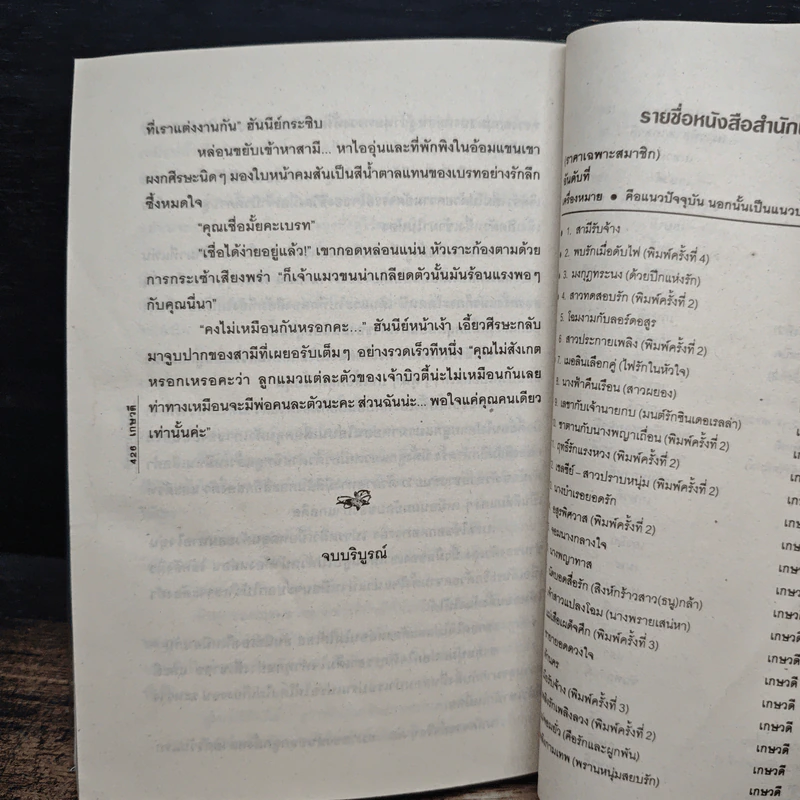 ที่เราแต่งงานกัน” ฮันนีย์กระซิบ
หล่อนขยับเข้าหาสามี... หาไออุ่นและที่พักพิงในอ้อมแขนเขา
ผงกศีรษะนิดๆ มองใบหน้าคมสันเป็นสีน้ำตาลแทนของเบรทอย่างรักลึก
ซึ้งหมดใจ
“คุณเชื่อมั้ยคะเบรท”
“เชื่อได้ง่ายอยู่แล้ว!” เขากอดหล่อนแน่น หัวเราะก้องตามด้วย
การกระเซ้าเสียงพร่า “ก็เจ้าแมวขนน่าเกลียดตัวนั้นมันร้อนแรงพอๆ
กับคุณนี่นา”
“คงไม่เหมือนกันหรอกคะ...” ฮันนีย์หน้าเง้า เอี้ยวศีรษะกลับ
มาจูบปากของสามีที่เผยอรับเต็มๆ อย่างรวดเร็วทีหนึ่ง “คุณไม่สังเกต
หรอกเหรอคะว่า ลูกแมวแต่ละตัวของเจ้าบิวตี้น่ะไม่เหมือนกันเลย
ท่าทางเหมือนจะมีพ่อคนละตัวนะคะ ส่วนฉันน่ะ... พอใจแค่คุณคนเดียว
เท่านั้นค่ะ”
426 เกษวดี
จบบริบูรณ์
รายชื่อหนังสือสำนัก
(ราคาเฉพาะสมาชิก)
อันดับที่
เครื่องหมาย ● คือแนวปัจจุบัน นอกนั้นเป็นแนว
1. สามีรับจ้าง
2. พบรักเมื่อดับไฟ (พิมพ์ครั้งที่ 4)
3. มงกุฎทระนง (ด้วยปีกแห่งรัก)
4. สาวทดสอบรัก (พิมพ์ครั้งที่ 2)
5. โฉมงามกับลอร์ดอสูร
6. สาวประกายเพลิง (พิมพ์ครั้งที่ 2)
7. เมอลินเลือกคู่ (ไฟรักในหัวใจ)
8. นางฟ้าคืนเรือน (สาวผยอง)
เลขากับเจ้านายกบ (มนต์รักซินเดอเรลล่า)
ราตานกับนางพญาเถื่อน (พิมพ์ครั้งที่ 2)
ฤทธิ์รักแรงหวง (พิมพ์ครั้งที่ 2)
เชลซีย์ – สาวปราบหนุ่ม (พิมพ์ครั้งที่ 2)
นางบำเรอยอดรัก
อสูรพิศวาส (พิมพ์ครั้งที่ 2)
จอมนางกลางใจ
นางพญาทาส
ยอดสื่อรัก (สิงห์กร้าวสาว(ธนู)กล้า) เกษวดี
สาวแปลงโฉม (นางพรายเสน่หา) เกษวดี
เสือเผด็จศึก (พิมพ์ครั้งที่ 3) เกษวดี
ยอดดวงใจ เกษวดี
รับจ้าง (พิมพ์ครั้งที่ 3) เกษวดี
รักเพลิงลวง (พิมพ์ครั้งที่ 2) เกษวดี
(คือรักและผูกพัน) เกษวดี
กามเทพ (พรานหนุ่มสยบรัก) เกษวดี